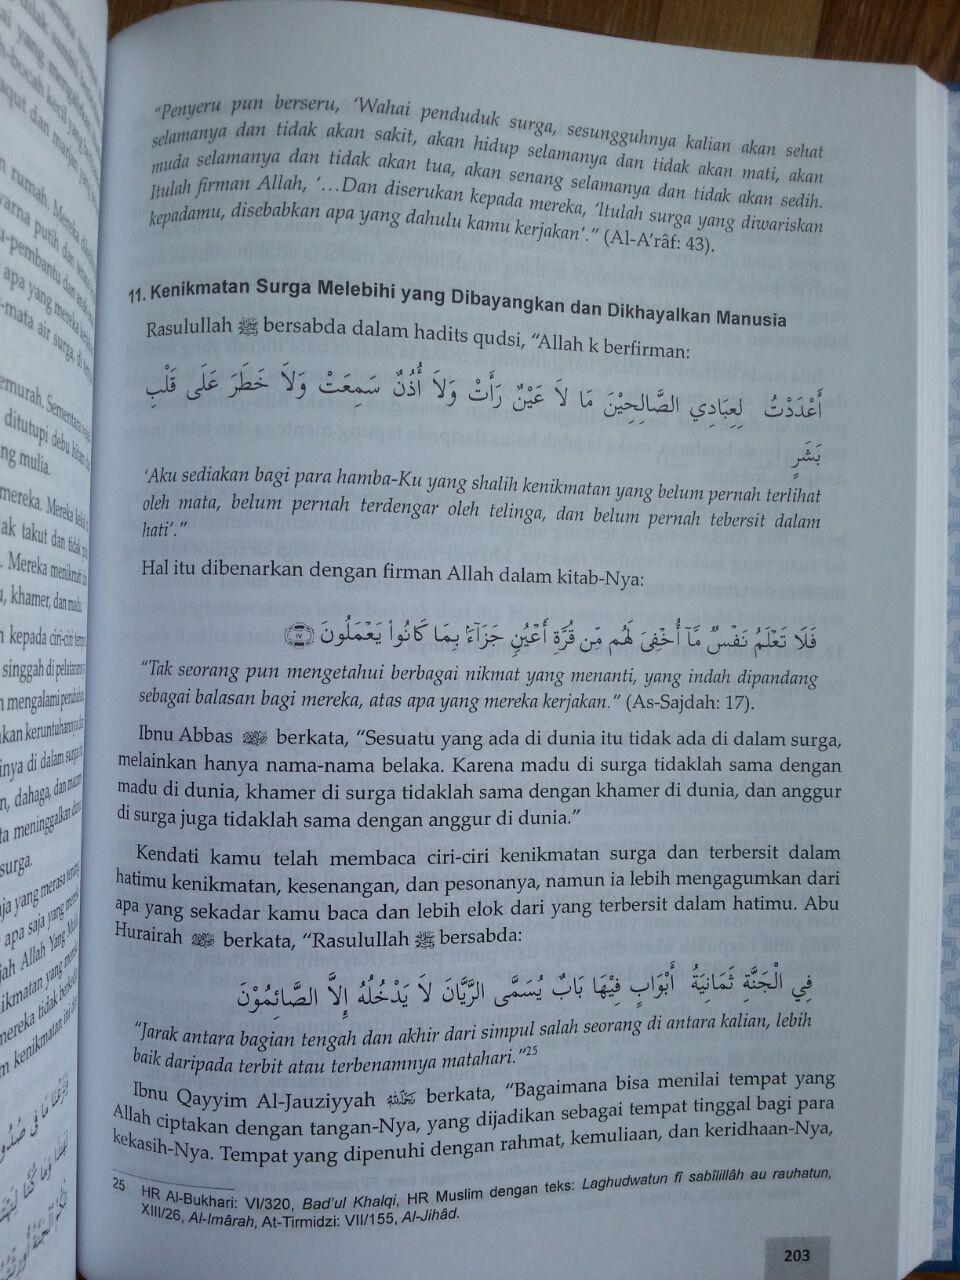 “Penyeru pun berseru, ‘Wahai penduduk surga, sesungguhnya kalian akan sehat
selamanya dan tidak akan sakit, akan hidup selamanya dan tidak akan mati, akan
muda selamanya dan tidak akan tua, akan senang selamanya dan tidak akan sedih.
Itulah firman Allah, ‘…Dan diserukan kepada mereka, ‘Itulah surga yang diwariskan
kepadamu, disebabkan apa yang dahulu kamu kerjakan’.” (Al-A’râf: 43).
11. Kenikmatan Surga Melebihi yang Dibayangkan dan Dikhayalkan Manusia
Rasulullah ﷺ bersabda dalam hadits qudsi, “Allah k berfirman:
أَعْدَدْتُ لِعِبَادِي الصَّالِحِيْنَ مَا لاَ عَيْنٌ رَأَتْ وَلاَ أُذُنٌ سَمِعَتْ وَلاَ خَطَرَ عَلَى قَلْبِ
بَشَرٍ
‘Aku sediakan bagi para hamba-Ku yang shalih kenikmatan yang belum pernah terlihat
oleh mata, belum pernah terdengar oleh telinga, dan belum pernah tebersit dalam
hati’.”
Hal itu dibenarkan dengan firman Allah dalam kitab-Nya:
فَلَا تَعْلَمُ نَفْسٌ مَّآ أُخْفِىَ لَهُم مِّن قُرَّةِ أَعْيُنٍ جَزَآءًۢ بِمَا كَانُوا۟ يَعْمَلُونَ ١٧
“Tak seorang pun mengetahui berbagai nikmat yang menanti, yang indah dipandang
sebagai balasan bagi mereka, atas apa yang mereka kerjakan.” (As-Sajdah: 17).
Ibnu Abbas berkata, “Sesuatu yang ada di dunia itu tidak ada di dalam surga,
melainkan hanya nama-nama belaka. Karena madu di surga tidaklah sama dengan
madu di dunia, khamer di surga tidaklah sama dengan khamer di dunia, dan anggur
di surga juga tidaklah sama dengan anggur di dunia.”
Kendati kamu telah membaca ciri-ciri kenikmatan surga dan terbersit dalam
hatimu kenikmatan, kesenangan, dan pesonanya, namun ia lebih mengagumkan dari
apa yang sekadar kamu baca dan lebih elok dari yang terbersit dalam hatimu. Abu
Hurairah berkata, “Rasulullah ﷺ bersabda:
فِي الْجَنَّةِ ثَمَانِيَةُ أَبْوَابٍ فِيْهَا بَابٌ يُسَمَّى الرَّيَّانَ لاَ يَدْخُلُهُ إِلاَّ الصَّائِمُوْنَ
“Jarak antara bagian tengah dan akhir dari simpul salah seorang di antara kalian, lebih
baik daripada terbit atau terbenamnya matahari.”25
Ibnu Qayyim Al-Jauziyyah berkata, “Bagaimana bisa menilai tempat yang
Allah ciptakan dengan tangan-Nya, yang dijadikan sebagai tempat tinggal bagi para
kekasih-Nya. Tempat yang dipenuhi dengan rahmat, kemuliaan, dan keridhaan-Nya,
25 HR Al-Bukhari: VI/320, Bad’ul Khalqi, HR Muslim dengan teks: Laghudwatun fî sabîlillâh au rauhatun,
XIII/26, Al-Imârah, At-Tirmidzi: VII/155, Al-Jihâd.
203